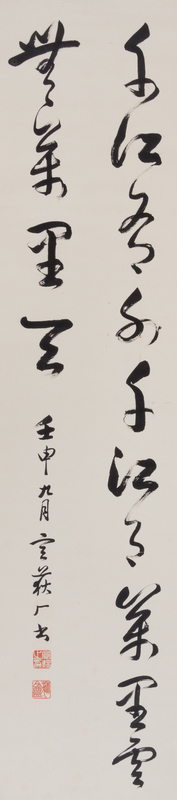 千江有水千江月萬里雲
無萬里天
壬申九月荻厂书